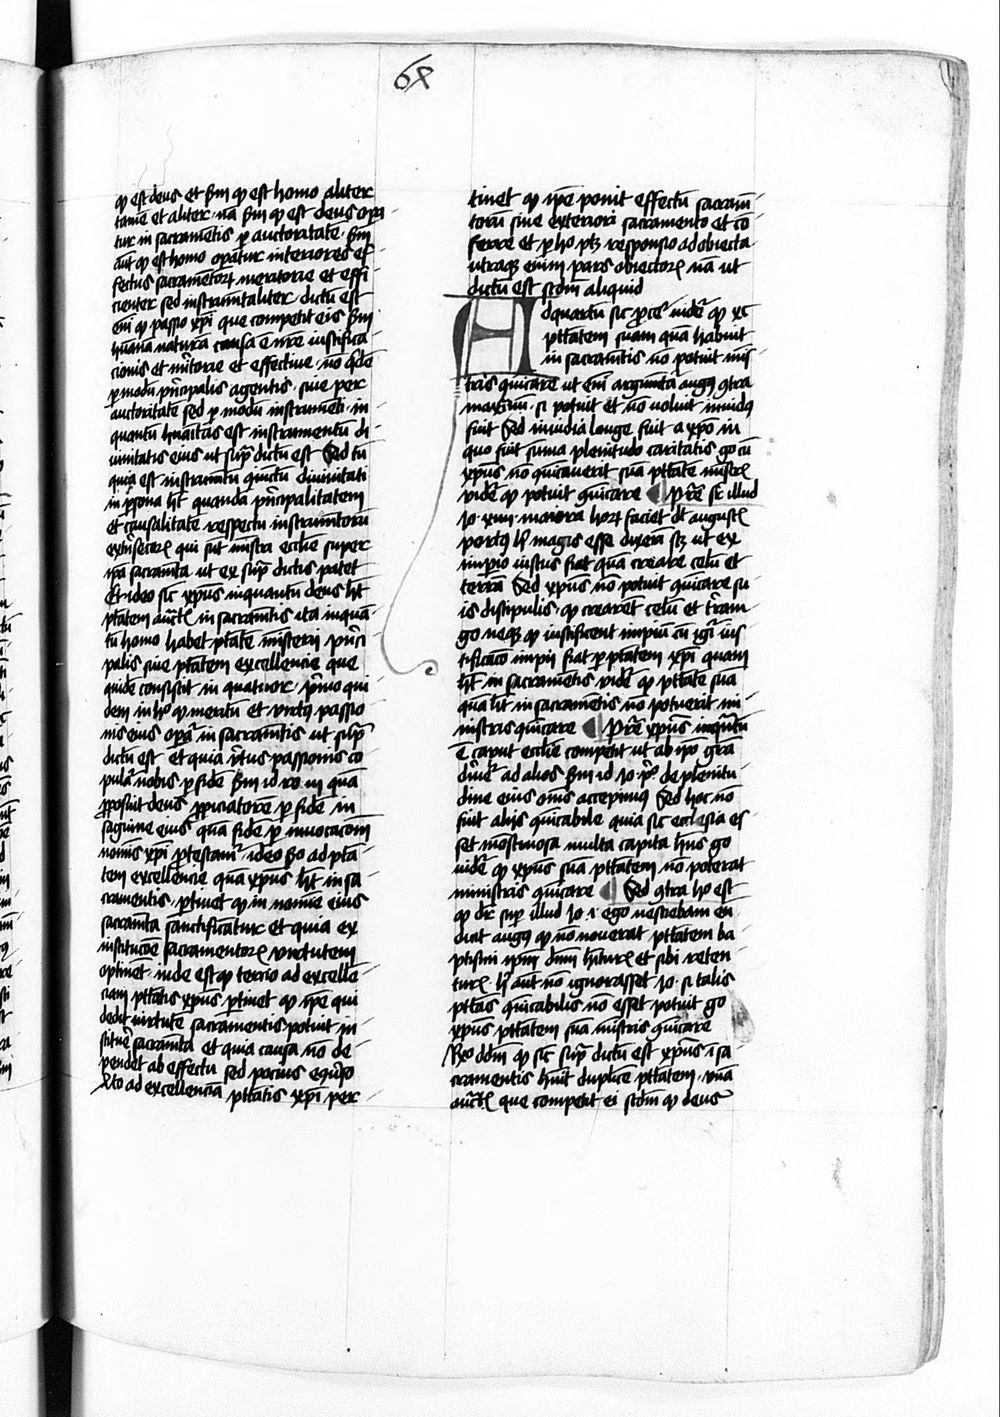 68
qp est deus et scdm qp est homo aliter
tamē et aliter. nā scdm qp est deus opa
tur in sacramētis p auctoritatē. scdm
aut qp est homo opatur interiores ef
fectus sacramētorz meritorie et effi
cienter sed instrumētaliter dictū est
eni qp passio xpi que competit eis scdm
humanā naturā causa ē nre iustifica
cionis et meritorie et effectiue. nō qdē
p modū pncipalis agentis. siue per
auctoritatē sed p modū instrumēti. in
quantū humāitas est instrumentū di
uinitatis eius ut sup dictū est Sed tn
quia est instrumētū cōiunctū diuinitati
in psona ht quandā pncipalitatem
et causalitatē respectu instrumētorū
extrīsecorz qui sūt mistri ecclie super
ipa sacramēta ut ex sup dictis patet
Et ideo sic xpus inquantū deus ht
ptatem auctis in sacramētis ita inquā
tū homo habet ptatē misterii pnci
palis siue ptatem excellencie que
quidē consistit in quatuor. pmo qui
dem in hoc qp meritū et virtus passio
nis eius opat in sacramētis ut sup
dictū est et quia virtus passionis co
pulat nobis p fidē scdm id ro. iii quā
pposuit deus ppiciatorē p fidē in
sagwine eius quā fidē p inuocacōem
nomis xpi ptestamur. ideo scdo ad ptā
tem excellencie quā xpus ht in sa
cramentis. ptinet qp in nomie eius
sacramēta sanctificātur et quia ex
institucōe sacramentorz virtutem
optinēt. inde est qp tercio ad excellē
ciam ptatis xpus ptinet qp ipe qui
dedit virtutē sacramentis potuit in
stituē sacramēta et quia causa nō de
pendet ab effectu sed pocius ecōuerso
qrto ad excellenciā ptatis xpi per
tinet qp ipe ponit effectū sacram
torū sine exteriori sacramento et cō
ferre et p hoc ptz responsio ad obiecta
utraqz enim pars obiectorz nā ut
dictū est scdm aliquid
Ad quartū sic pced videt qp xc
ptatem suam quā habuit
in sacramētis nō potuit mīs
tris quicare ut eni argumēta augus gtra
maximū. si potuit et nō voluit inuidus
fuit Sed inuidia longe fuit a xpo in
quo fuit suma plenitudo caritatis go cū
xpus nō quicauerit suā ptatē mistris
videt qp potuit quicare Pre sr illud
Jo. xiiii. maiora horz faciet dt augustis
porsus hoc magis esse dixerī scz ut ex
impio iustus fiat quā creare celū et
terrā Sed xpus nō potuit quicare su
is discipulis. qp crearēt celū et terram
go neqz qp iustificent impiū cū igit ius
tificaco impii fiat p ptatem xpi quam
ht in sacramētis videt qp ptatē suā
quā ht in sacramētis nō potuerit mi
nistris quicare Pre xpus inqntū
ē caput ecclie competit ut ab ipo gra
diuet ad alios scdm id Jo. po. de plenitu
dine eius oms accepimus Sed hoc nō
fuit aliis quicabile quia sic ecclesia es
set mōstruosa multa capita hns go
videt qp xpus suā ptatem nō poterat
ministris quicare Sed gtra hoc est
qp dr sup illud Jo 1. ego nesciebam eū
dicit augus qp nō nouerat ptatem ba
ptismi ipm dnm hiturz et sibi reten
turz hoc aut nō ignorasset Jo. si talis
ptās quicabilis nō esset potuit go
xpus ptatem suā mistris quicare
Rno ddm qp sic sup dictū est xpus ī sa
cramentis huit duplicē ptatem. vnā
auctis que competit ei scdm qp deus